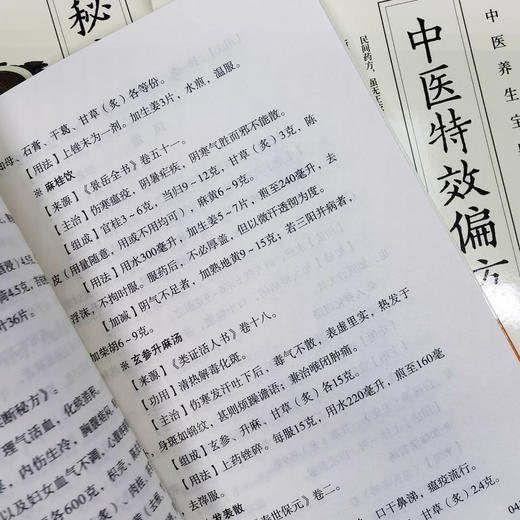 秘
中医特效偏方
中医养生宝
民间药方,
知母、石膏、干葛、甘草(炙)各等份。
【用法】上锉末为一剂。加生姜3片,水煎,温服。
※ 麻桂饮
【来源】《景岳全书》卷五十一。
【主治】伤寒瘟疫,阴暑疟疾,阴寒气胜而邪不能散。
【组成】官桂3~6克,当归9~12克,甘草(炙)3克,陈
皮(用量随意,用或不用均可),麻黄6~9克。
【用法】用水300毫升,加生姜5~7片,煎至240毫升,去
浮沫,不拘时服。服药后,不必厚盖,但以微汗透彻为度。
【加减】阴气不足者,加熟地黄9~15克;若三阳并病者,
加柴胡6~9克。
※ 玄参升麻汤
【来源】《类证活人书》卷十八。
【功用】清热解毒化斑。
【主治】伤寒发汗吐下后,毒气不散,表虚里实,热发于
,身斑如锦纹,甚则烦躁谵语;兼治喉闭肿痛。
【组成】玄参、升麻、甘草(炙)各15克。
【用法】上药锉碎。每服15克,用水220毫升,煎至160毫
去滓服。
发表散
寿世保元》卷二。
,口干鼻涕,瘟疫流行。
克,甘草(炙)2.4克。
04
满45克,
片36片。
断秘方》
理气活血,化痰
,内伤生冷,胸腹
以及妇女血气不调,心腹
各600克,枳壳、